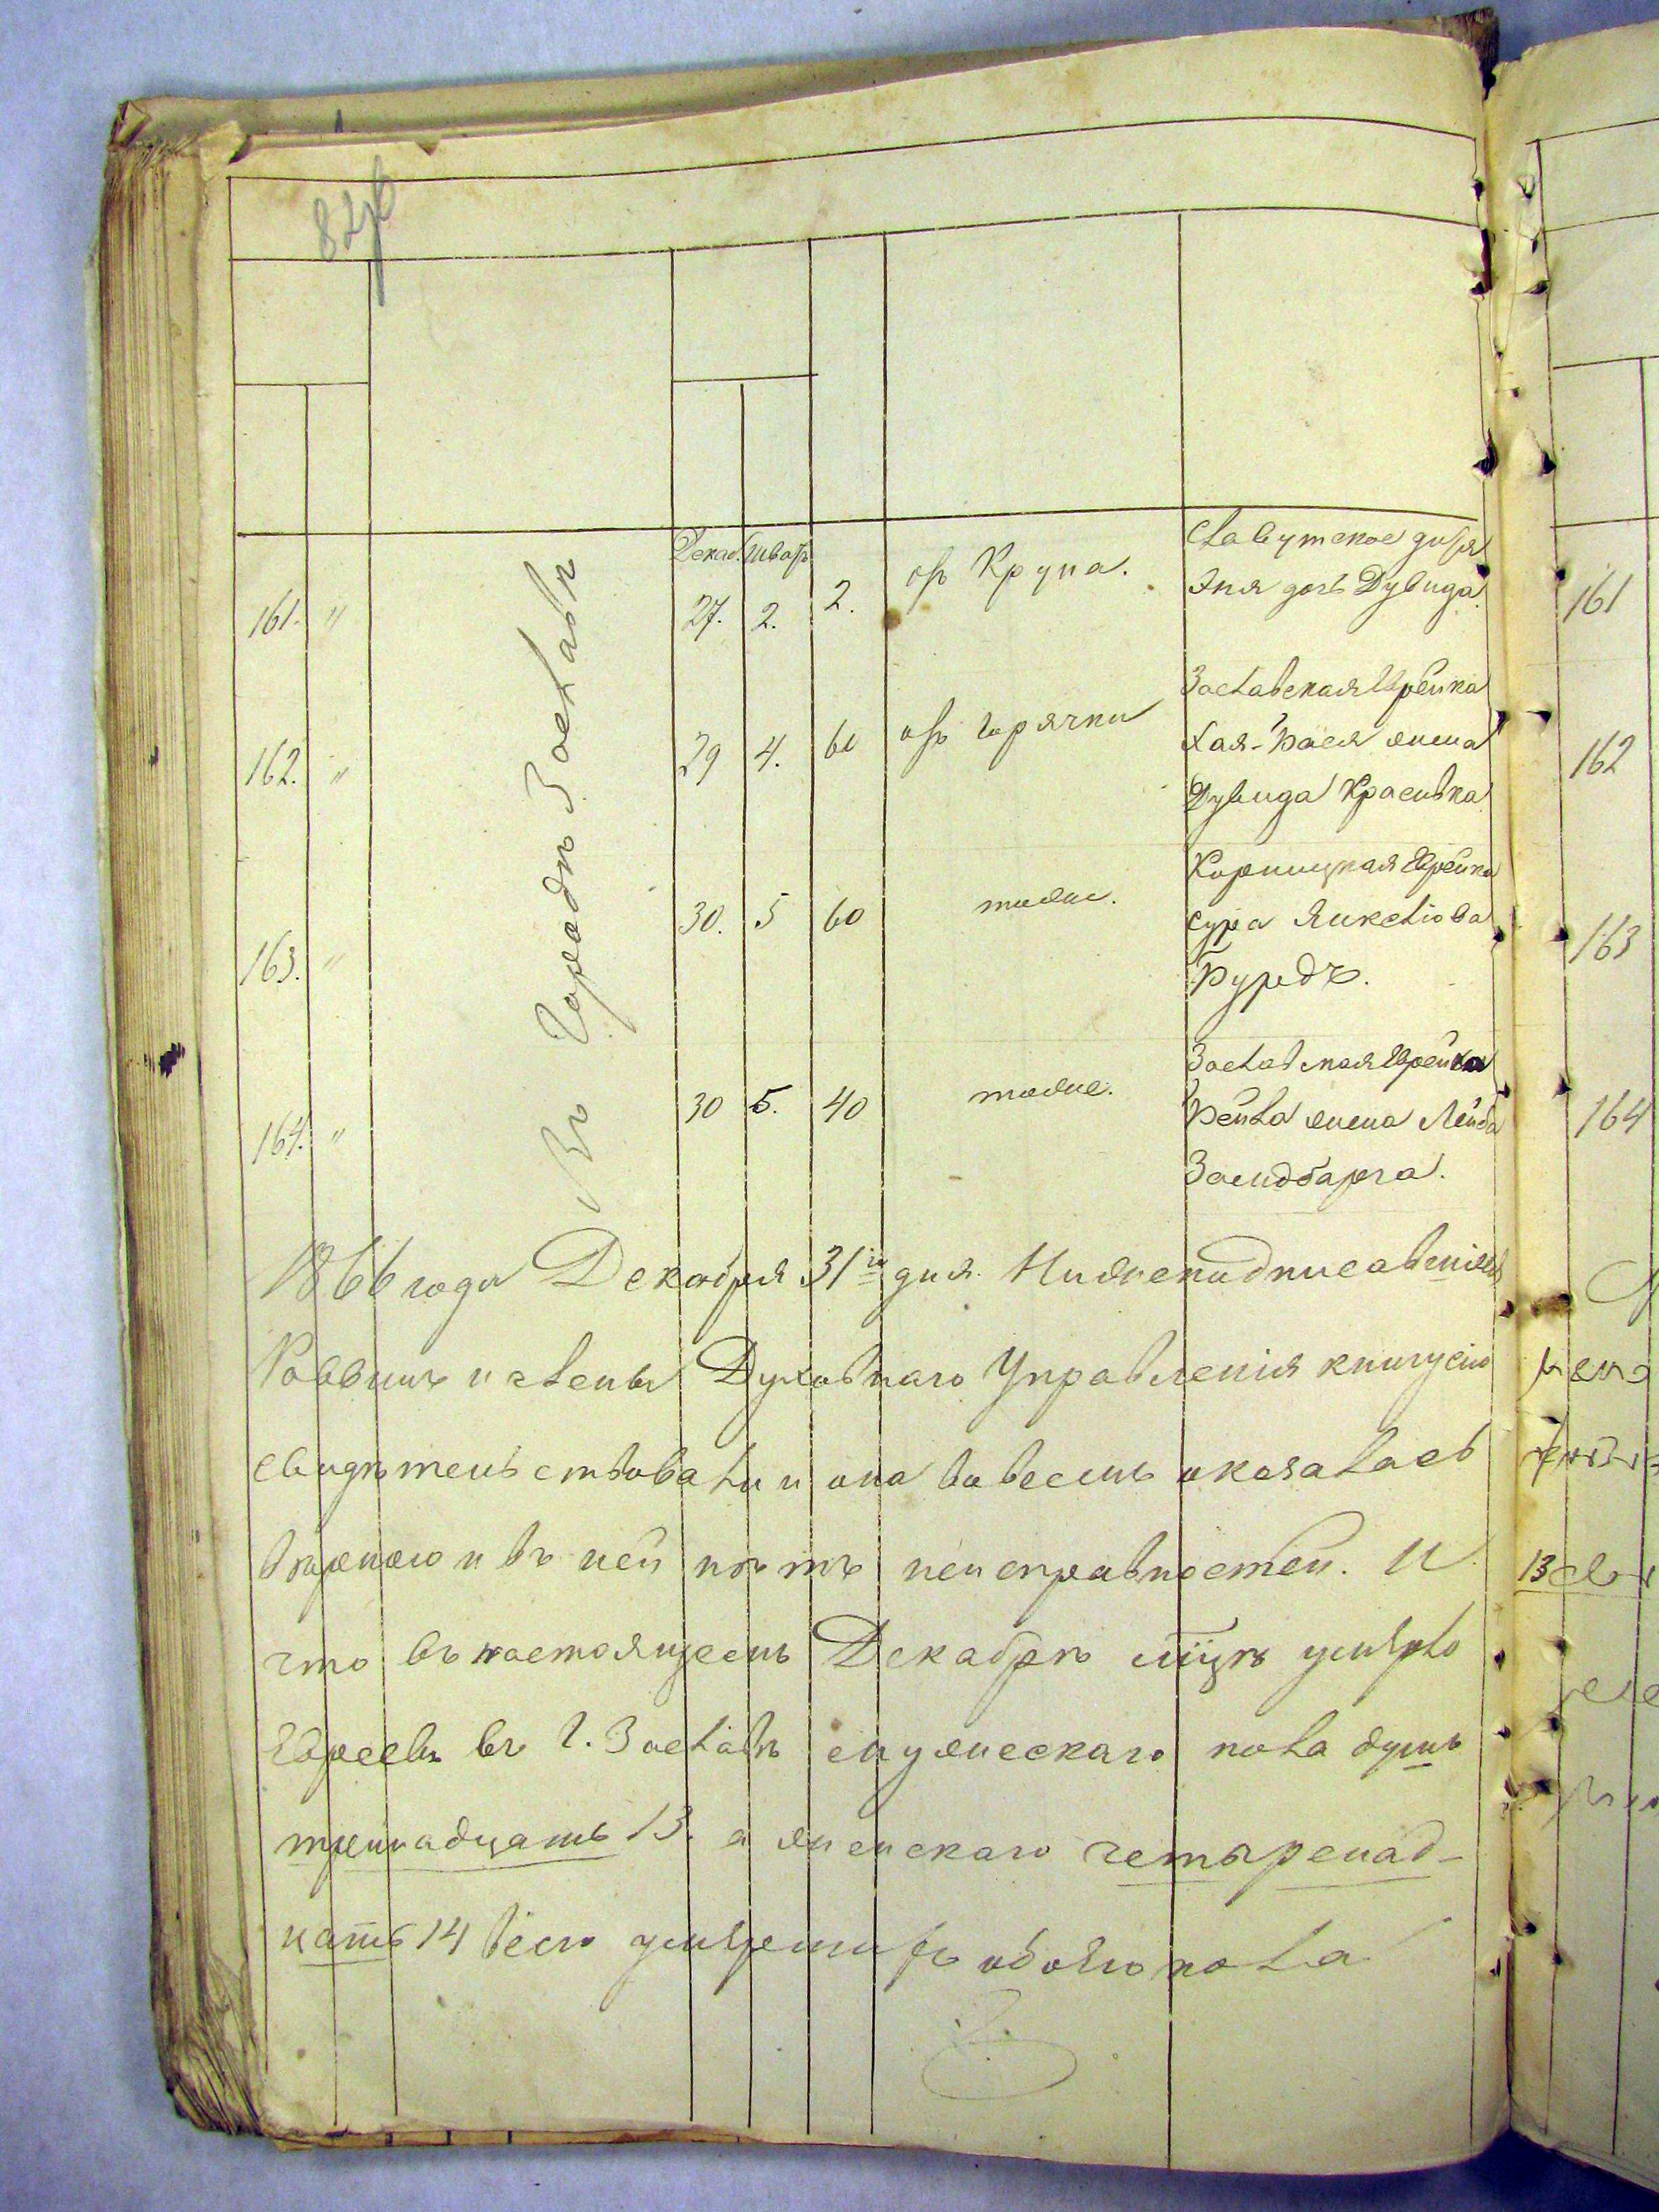 Декаб. Шват
161. " 27. 2. 2. отъ Крупа. Славутское дитя
Эня дочь Дувида.
162. " 29 4. 60 отъ горячки Заславская Еврейка
Хая-Рася жена
Дувида Красивка
163. " 30. 5 60 тоже. Корницкая Еврейка
Сура Янкелiова
Бурдъ.
164. " 30 5. 40 тоже. Заславская Еврейка
Рейла жена Лейба
Въ Городѣ Заславѣ
1866 года Декабря 31го дня. Нижеподписавшiеся
Раввинъ и члены Духовнаго Управленiя книгу сiю
свидѣтельствовали и она во всемъ оказалась
вѣрною и въ ней нѣтъ неисправностей. И
что въ настоящемъ Декабрѣ мѣцѣ умерло
Евреевъ въ г. Заславѣ мужескаго пола душъ
тринадцать 13. а женскаго четыренад-
цать 14 всего умершихъ обоего пола
161
162
163
164